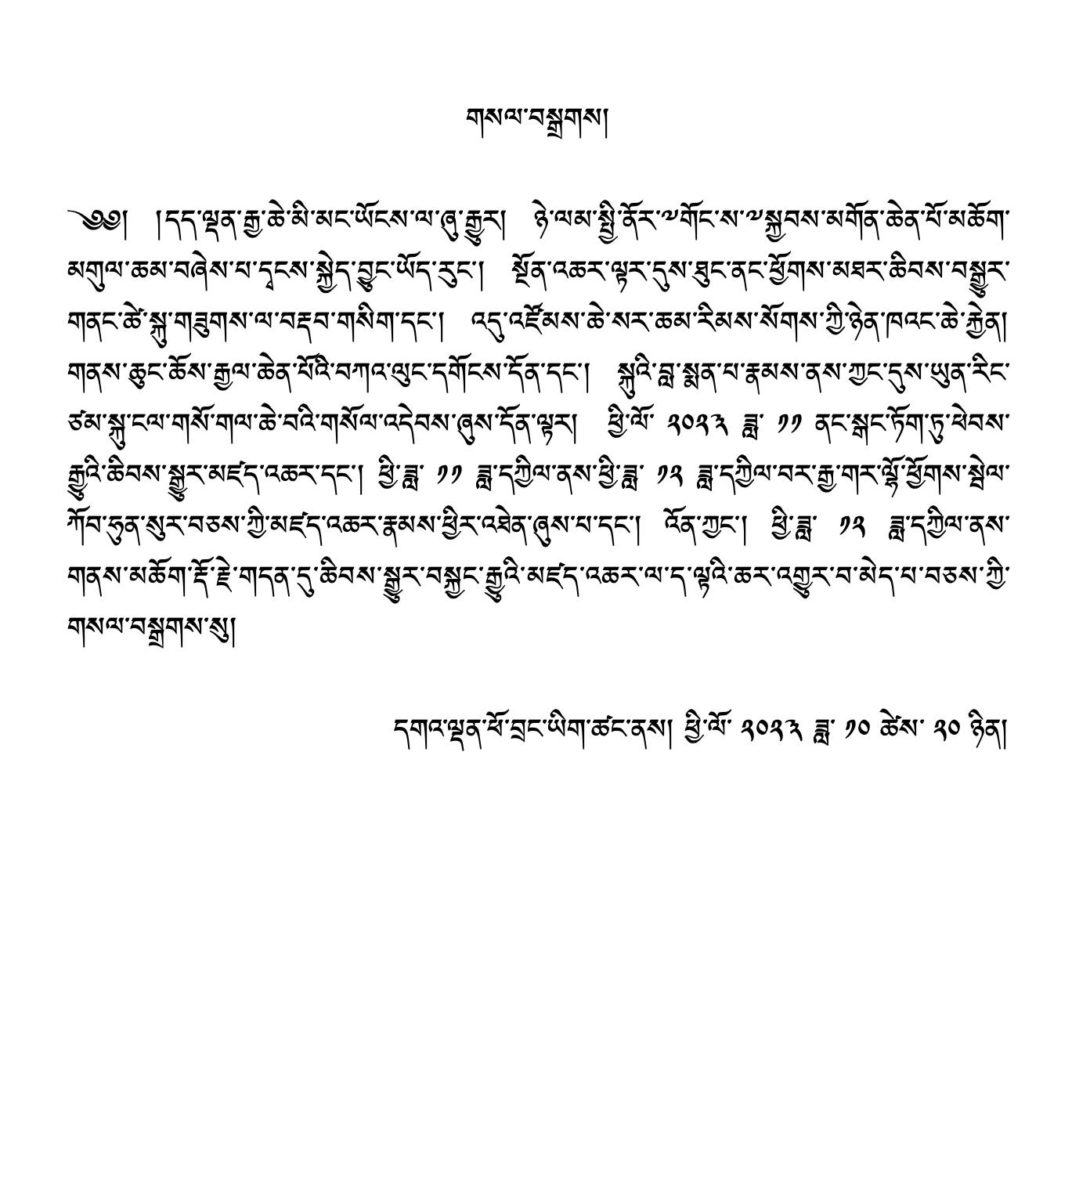 གསལ་བསྒྲགས།
༄༅། །དད་ལྡན་རྒྱ་ཆེ་མི་མང་ཡོངས་ལ་ཞུ་རྒྱུར། ཉེ་ལམ་སྤྱི་ནོར་༸གོང་ས་༸སྐྱབས་མགོན་ཆེན་པོ་མཆོག་
མགུལ་ཆམ་བཞེས་པ་དྭངས་སྐྱེད་བྱུང་ཡོད་རུང་། སྔོན་འཆར་ལྟར་དུས་ཐུང་ནང་ཕྱོགས་མཐར་ཆིབས་བསྒྱུར་
གནང་ཚེ་སྐུ་གཟུགས་ལ་བརྡབ་གསིག་དང་། འདུ་འཛོམས་ཆེ་སར་ཆམ་རིམས་སོགས་ཀྱི་ཉེན་ཁའང་ཆེ་རྐྱེན།
གནས་ཆུང་ཆོས་རྒྱལ་ཆེན་པོའི་བཀའ་ལུང་དགོངས་དོན་དང་། སྐུའི་བླ་སྨན་པ་རྣམས་ནས་ཀྱང་དུས་ཡུན་རིང་
ཙམ་སྐུ་ངལ་གསོ་གལ་ཆེ་བའི་གསོལ་འདེབས་ཞུས་དོན་ལྟར། ཕྱི་ལོ་ ༢༠༢༣ ཟླ་ ༡༡ ནང་སྒང་ཏོག་ཏུ་ཕེབས་
རྒྱུའི་ཆིབས་སྒྱུར་མཛད་འཆར་དང་། ཕྱི་ཟླ་ ༡༡ ཟླ་དཀྱིལ་ནས་ཕྱི་ཟླ་ ༡༢ ཟླ་དཀྱིལ་བར་རྒྱ་གར་ལྷོ་ཕྱོགས་སྦེལ་
ཀོབ་ཧུན་སུར་བཅས་ཀྱི་མཛད་འཆར་རྣམས་ཕྱིར་འཐེན་ཞུས་པ་དང་། འོན་ཀྱང་། ཕྱི་ཟླ་ ༡༢ ཟླ་དཀྱིལ་ནས་
གནས་མཆོག་རྡོ་རྗེ་གདན་དུ་ཆིབས་སྒྱུར་བསྐྱང་རྒྱུའི་མཛད་འཆར་ལ་ད་ལྟའི་ཆར་འགྱུར་བ་མེད་པ་བཅས་ཀྱི་
གསལ་བསྒྲགས་སུ།
དགའ་ལྡན་ཕོ་བྲང་ཡིག་ཚང་ནས། ཕྱི་ལོ་ ༢༠༢༣ ཟླ་ ༡༠ ཚེས་ ༢༠ ཉིན།